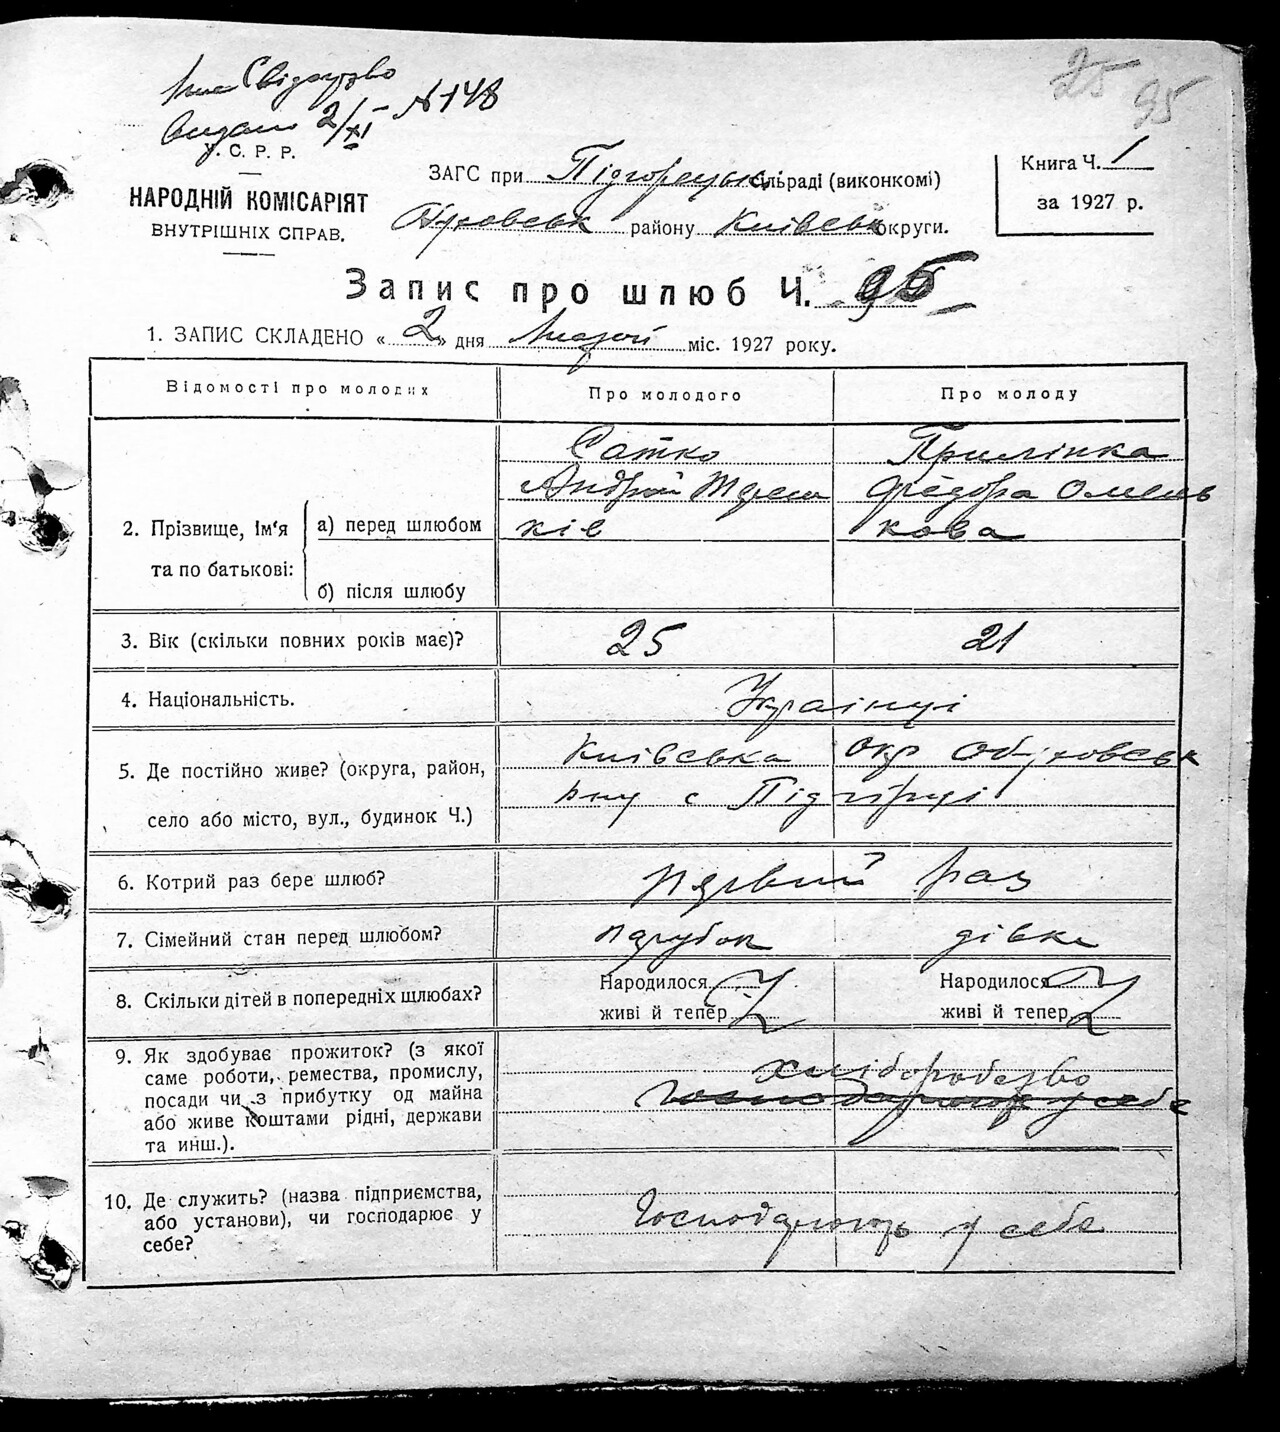 25 95
Свідоцтво
видано 2/XI № 148
У. С. Р. Р.
НАРОДНІЙ КОМІСАРІЯТ
ВНУТРІШНІХ СПРАВ.
ЗАГС при Підгорецьк. сільраді (виконкомі)
району Київськ округи.
Книга Ч. 1
за 1927 р.
Запис про шлюб Ч. 95
1. ЗАПИС СКЛАДЕНО « 2 » дня міс. 1927 року.
Відомості про молодих Про молодого Про молоду
2. Прізвище, ім‘я та по батькові:
а) перед шлюбом
Сатко
Андрій
ків
Федора Омель
кова
б) після шлюбу
3. Вік (скільки повних років має)? 25 21
4. Національність. Українці
5. Де постійно живе? (округа, район,
село або місто, вул., будинок Ч.)
Київська окр Обуховськ
рну с Підгірці
6. Котрий раз бере шлюб? первий раз
7. Сімейний стан перед шлюбом? парубок дівка
8. Скільки дітей в попередніх шлюбах?
Народилося
живі й тепер
Народилося
живі й тепер
9. Як здобуває прожиток? (з якої
саме роботи, ремества, промислу,
посади чи з прибутку од майна
або живе коштами рідні, держави
та инш.).
хліборобство
10. Де служить? (назва підприємства,
або установи), чи господарює у
себе?
Господарюють у себе